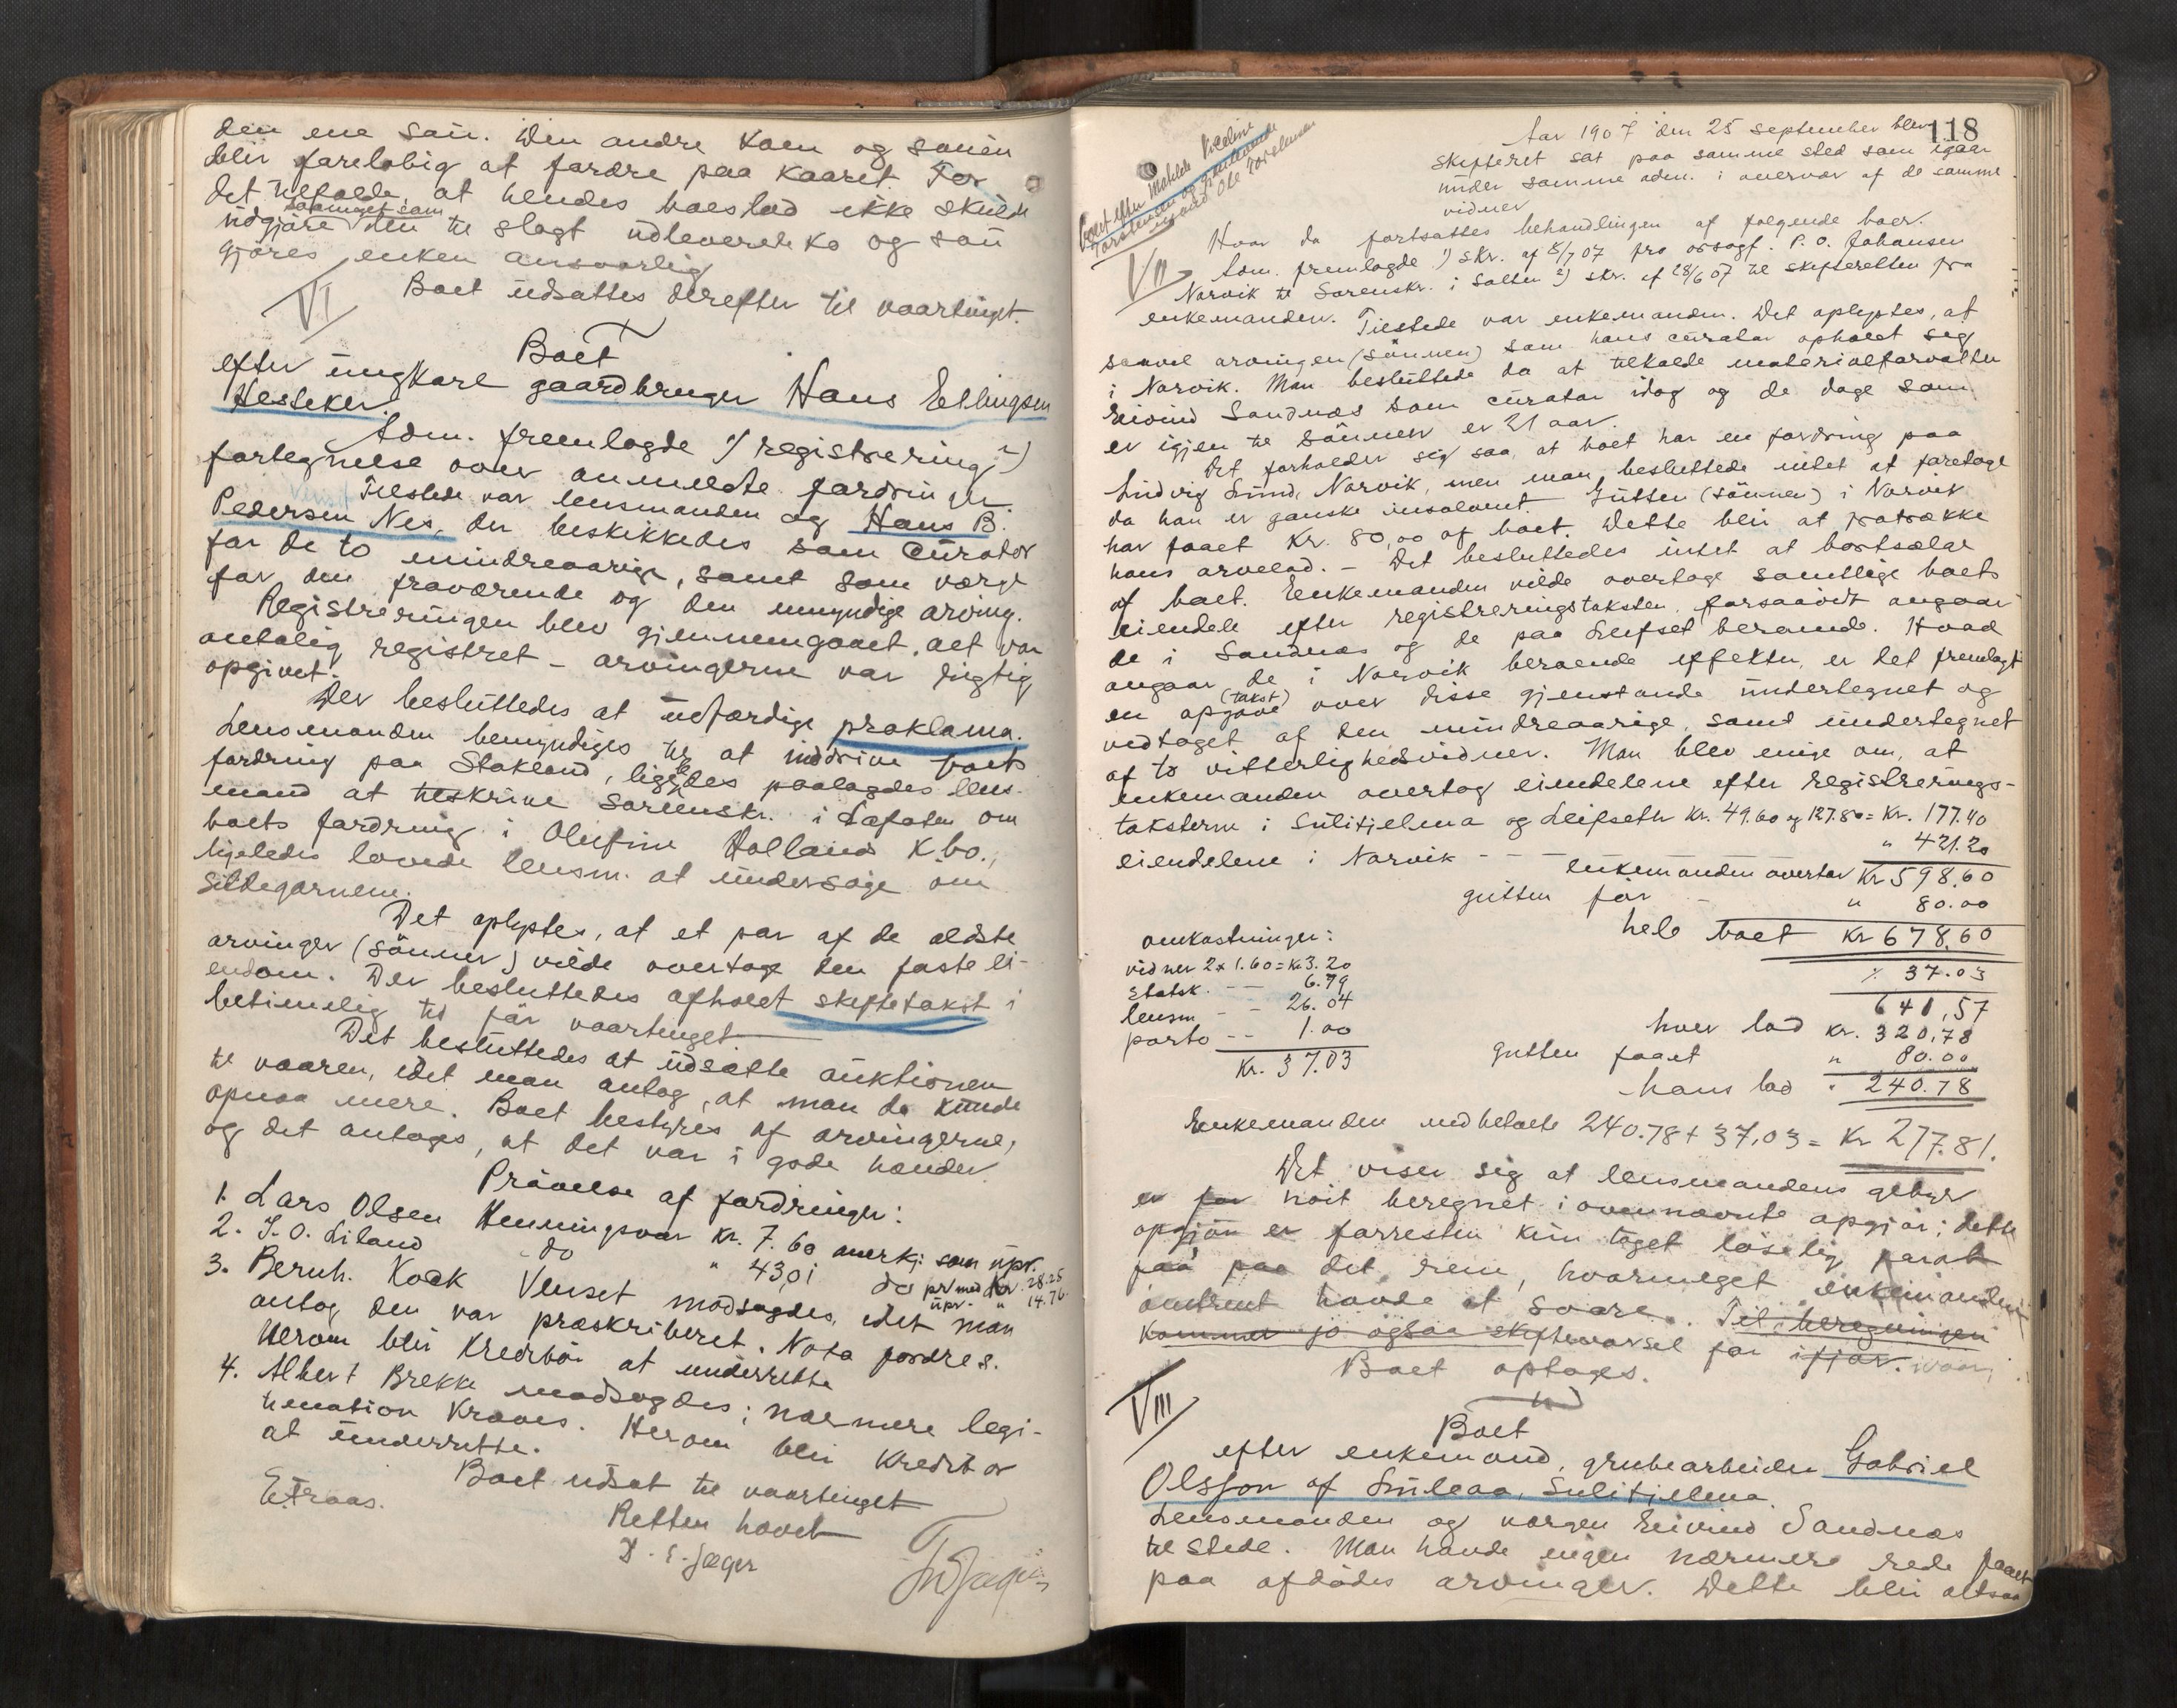 den ene sau. Den andre koen og sauen
blir foreløbig at fordre paa kaaret. For
det tilfælde, at hendes boeslod ikke skulde
saameget som
udgjøre den til slagt udleverede ko og sau
gjøres enken ansvarlig
Boet udsattes derefter til vaartinget.
VI
Boet
efter ungkarl gaardbruger Hans Ellingsen
Hesteker.
Adm. fremlagde 1) registrering 2)
fortegnelse over anmeldte fordringer.
Tilstede var lensmanden og Hans B.
Pedersen Nes, der beskikkedes som curator
for de to mindreaarige, samt som værge
for den fraværende og den umyndige arving.
Registreringen blev gjennemgaaet. Alt var
antalig registret – arvingerne var rigtig
opgivet.
Der besluttedes at udfærdige proklama.
Lensmanden bemyndiges til at inddrive boets
fordring paa Stokland, ligeledes paalagdes lens-
mand at tilskrive Sorenskr. i Lofoten om
boets fordring i Olufine Hollands K.bo.,
ligeledes lovede lensm. at undersøge om
sildegarnene.
Det oplystes, at et par af de ældste
arvinger (sønner) vilde overtage den faste ei-
endom. Der besluttedes afholdt skiftetakst i
betimelig tid før vaartinget
Det besluttedes at udsætte auktionen
til vaaren, idet man antog, at man da kunde
opnaa mere. Boet bestyres af arvingerne,
og det antoges, at det var i gode hænder.
Prøvelse af fordringer:
1. Lars Olsen Henningsvær Kr. 7.60 anerkj. som upr.
2. J. O. Liland do " 43,01 do pr med Kr. 28.25
upr. " 14.76
3. Bernh. Kock Venset modsagdes, idet man
antog den var præskriberet. Nota fordres.
Herom blir Kreditor at underrette
4. Albert Brekke modsagdes; nærmere legi-
timation kræves. Herom blir Kreditor
at underrette.
Boet udsat til vaartinget
Retten hævet
E. Fraas.
D. E. Jæger
118
Aar 1907 den 25 september blev
skifteret sat paa samme sted som igaar
under samme adm. i overvær af de samme
vidner
Boet efter Matilde Nicoline
Torstensen og gjenlevende
mand Ole Torstensen
VII
Hvor da fortsattes behandlingen af følgende boer.
Adm. fremlagde 1) skr. af 8/7 07 fra orsagf. P. O. Johansen
Narvik til Sorenskr. i Salten 2) skr. af 28/6 07 til skifteretten fra
enkemanden. Tilstede var enkemanden. Det oplystes, at
saavel arvingen (sønnen) som hans curator opholdt seg
i Narvik. Man besluttede da at tilkalde materialforvalter
Eivind Sandnæs som curator idag og de dage som
er igjen til sønnen er 21 aar.
Det forholder sig saa, at boet har en fordring paa
Ludvig Lund, Narvik, men man besluttede intet at foretage
da han er ganske insolvent. Gutten (sønnen) i Narvik
har faaet Kr. 80,00 af boet. Dette blir at fratrække
hans arvelod. – Det besluttedes intet at bortsælge
af boet. Enkemanden vilde overtage samtlige boets
eiendele efter registreringstaksten, forsaavidt angaar
de i Sandnæs og de paa Leifset beroende. Hvad
angaar de i Narvik beroende effekter, er det fremlagt
(takst)
en opgave over disse gjenstande undertegnet og
vedtaget af den mindreaarige, samt undertegnet
af to vitterlighedsvidner. Man blev enige om, at
enkemanden overtog eiendelene efter registrerings-
taksterne i Sulitjelma og Leifseth Kr. 49.60 og 127.80 = Kr. 177.40
eiendelene i Narvik – – – " 421.20
enkemanden overtar Kr 598.60
gutten får – " 80.00
hele boet Kr 678.60
% 37.03
641,57
hver lod Kr. 320,78
gutten faaet " 80.00
hans lod " 240.78
omkostninger:
vidner 2 x 1.60 = Kr. 3.20
Statsk. – – 6.79
lensm – – 26.04
porto – – 1.00
Kr. 37.03
Enkemanden indbetalte 240.78 + 37,03 = Kr 277.81.
Det viser sig at lensmandens gebyr
er for høit beregnet i ovennævnte opgjør; dette
opgjør er forresten kun taget løselig
paa det rene, hvormeget enkemanden
omtrent havde at svare. Til beregningen
kommer jo ogsaa skiftevarsel for ifjor.
Boet optages.
VIII
Boet
efter enkemand, grubearbeider Gabriel
Olsson af Luleaa, Sulitjelma.
Lensmanden og værgen Eivind Sandnæs
tilstede. Man havde ingen nærmere rede faaet
paa afdødes arvinger. Dette blir altsaa